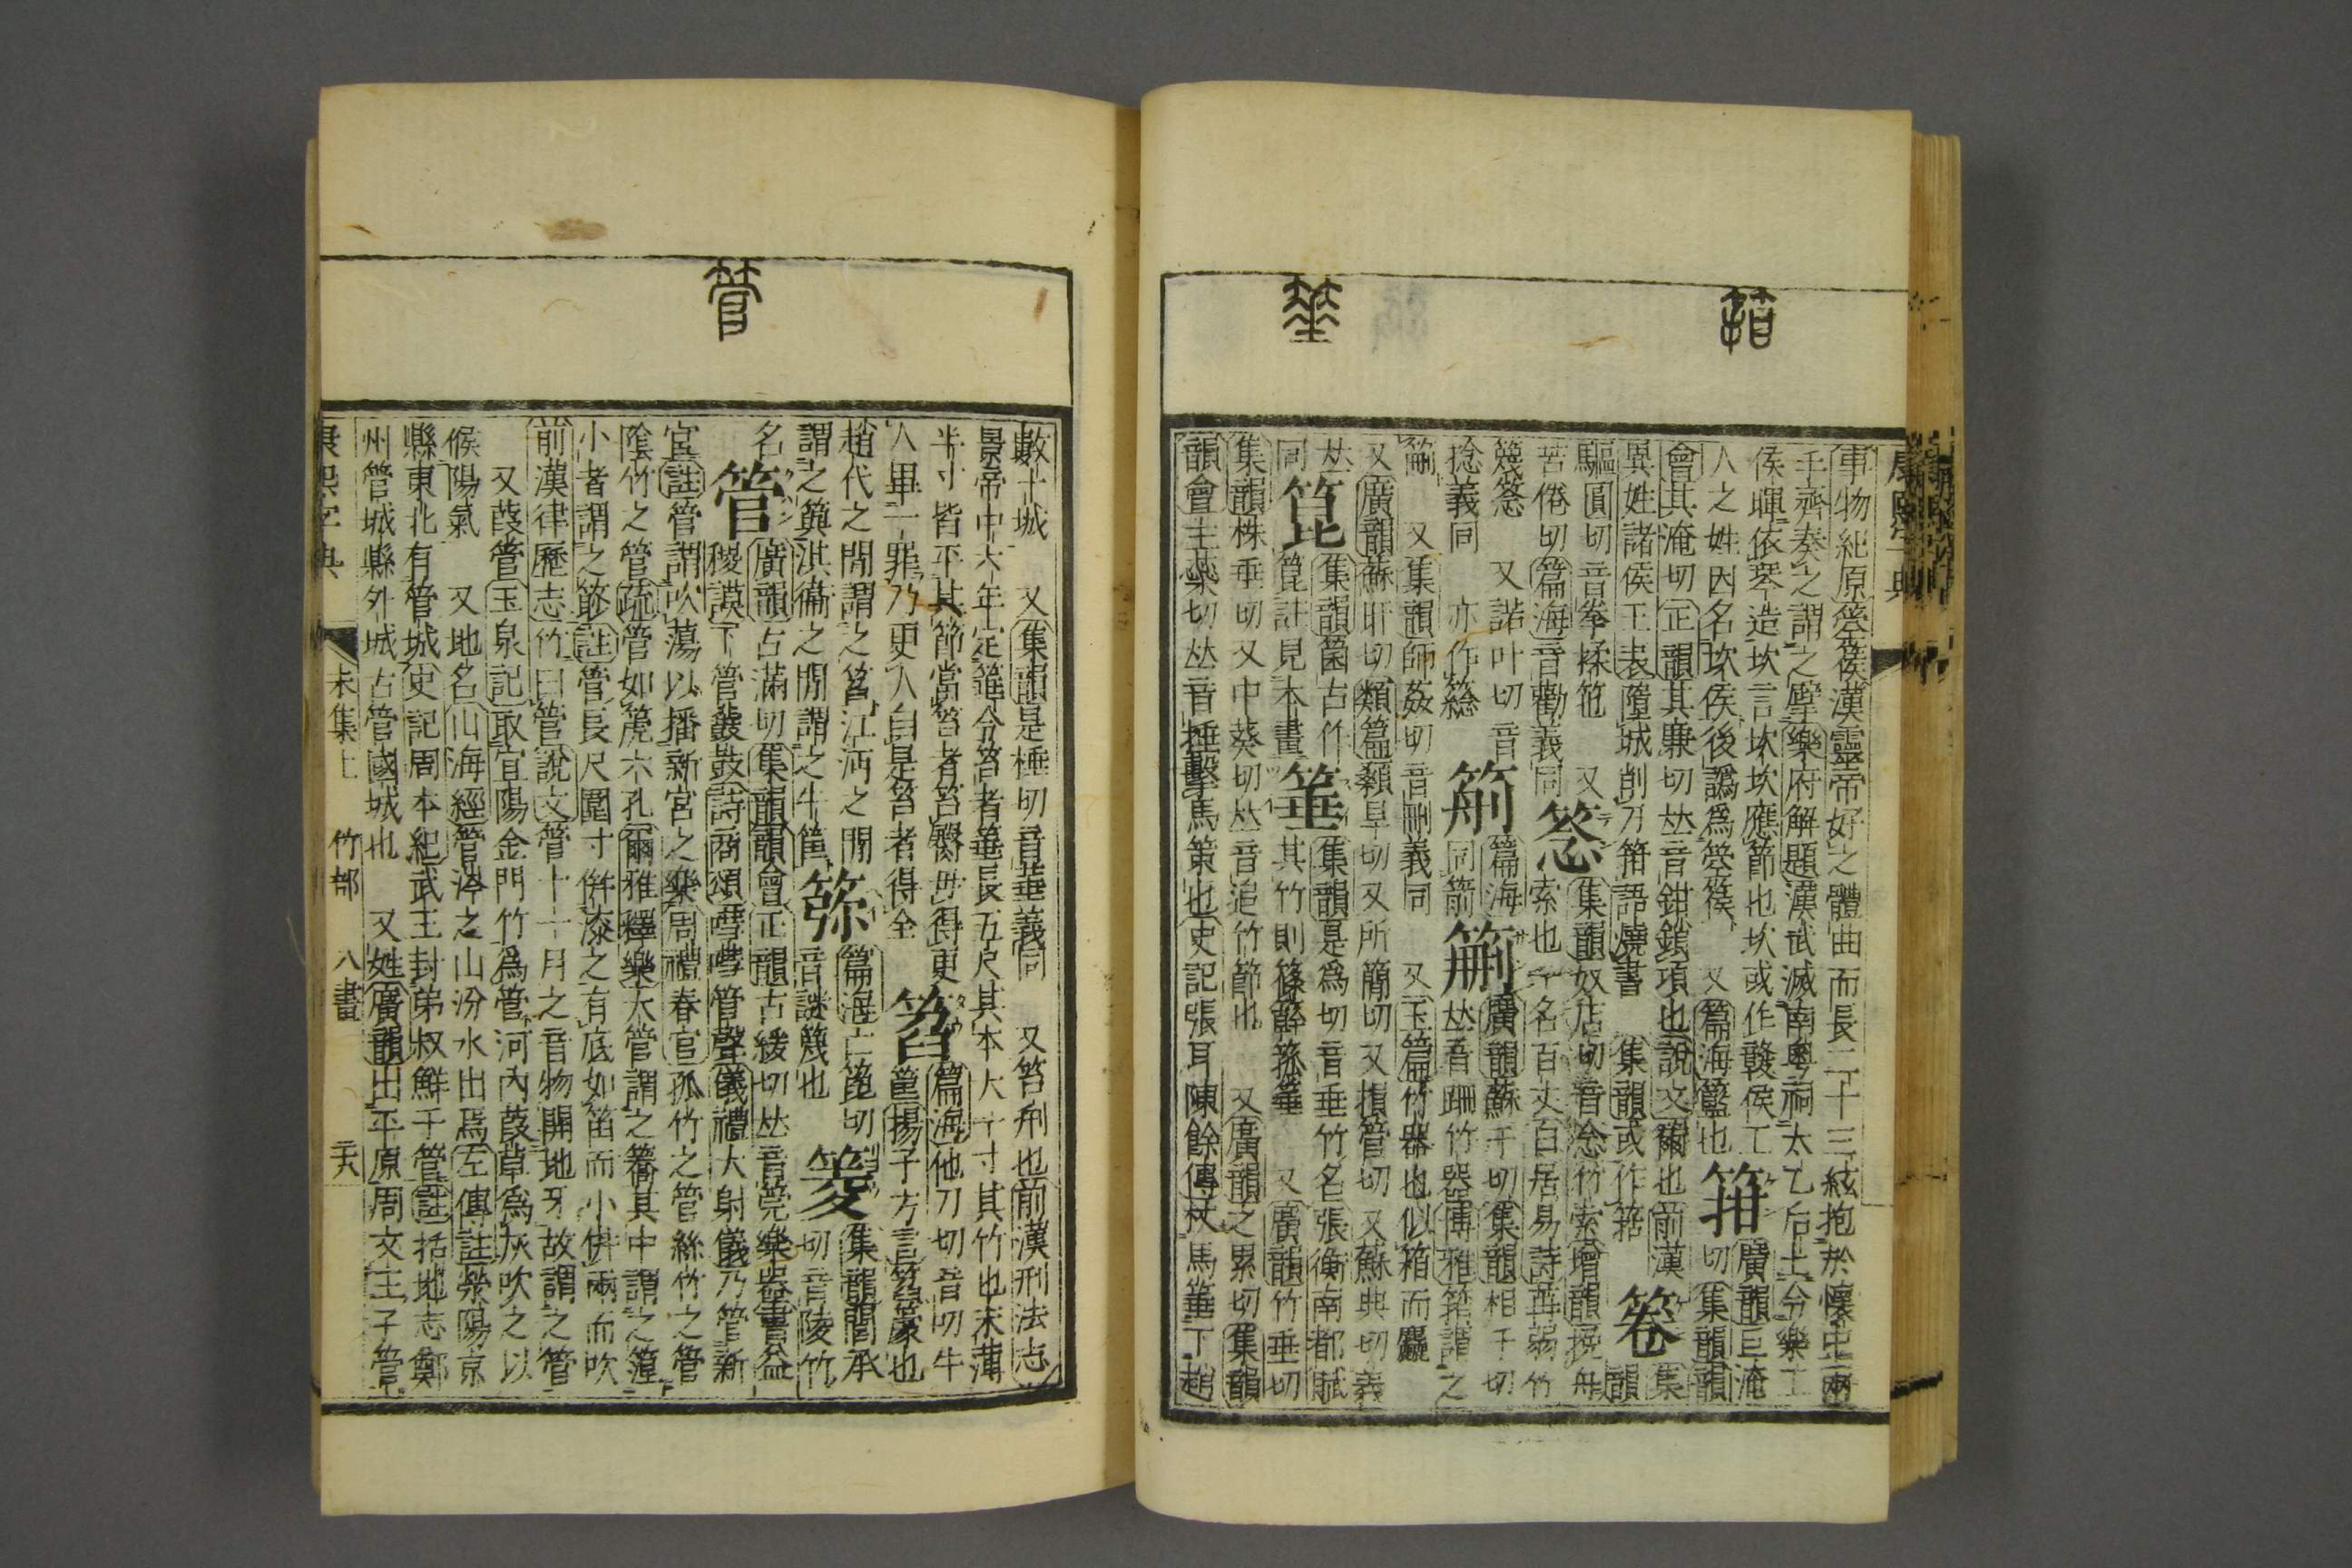 康熙字典
事物紀原箜篌漢靈帝好之體曲而長二十三絃抱於懷中兩
手齊奏之謂之擘樂府解題漢武滅南粤祠太乙后土令樂工
侯暉依琴造坎言坎坎應節也坎或作䶀侯工 箝 廣韻巨淹
人之姓因名坎侯後譌爲箜篌 又篇海籃也 切集韻韻
會其淹切正韻其廉切𠀤音鉗鎖項也說文籋也前漢 箞 集
異姓諸侯王表墮城削刃箝語燒書 集韻或作 韻
驅圓切音拳揉竹也 又 䇯 集韻奴店切音念竹索增韻挽舟
苦倦切篇海音勸義同 索也一名百丈白居易詩苒蒻竹
篾䇯 又諾叶切音 篇海 廣韻蘇干切集韻相干切
捻義同 亦作 同箭 𠀤音跚竹器博雅箱謂之
又集韻師姦切音刪義同 又玉篇竹器也似箱而麤
又廣韻蘇旰切類篇顙旱切又所簡切又損管切又蘇典切義
𠀤同 箟 集韻箘古作 箠 集韻是爲切音垂竹名張衡南都賦
箟註見本畫 其竹則篠簳箛箠 又廣韻竹垂切
集韻株垂切又中葵切𠀤音追竹節也 又廣韻之累切集韻
韻會主橤切𠀤音捶擊馬策也史記張耳陳餘傳杖馬箠下趙
數十城 又集韻是棰切音菙義同 又笞刑也前漢刑法志
景帝中六年定箠令笞者箠長五尺其本大一寸其竹也末薄
半寸皆平其節當笞者笞臀毋得更 篇海他刀切音叨牛
人畢一罪乃更人自是笞者得全 䈱揚子方言篆也
趙代之閒謂之筥江沔之閒 篇海亡篦切 集韻閭承
謂之䉛淇衞之閒謂之牛筐 音謎篾也 切音陵竹
名 管 廣韻古滿切集韻韻會正韻古緩切𠀤音莞樂器書益
稷謨下管鼗鼓詩商頌嘒嘒管聲儀禮大射儀乃管新
宮註管謂吹蕩以播新宮之樂周禮春官孤竹之管絲竹之管
陰竹之管疏管如篪六孔爾雅釋樂大管謂之簥其中謂之篞
小者謂之篎註管長尺圍寸倂漆之有底如笛而小倂兩而吹
前漢律歷志竹曰管說文管十一月之音物開地牙故謂之管
又葭管玉泉記取宜陽金門竹爲管河內葭草爲灰吹之以
候陽氣 又地名山海經管涔之山汾水出焉左傳註滎陽京
縣東北有管城史記周本紀武王封弟叔鮮于管註括地志鄭
州管城縣外城古管國城也 又姓廣韻出平原周文王子管
康熙字典 未集上 竹部 八畫